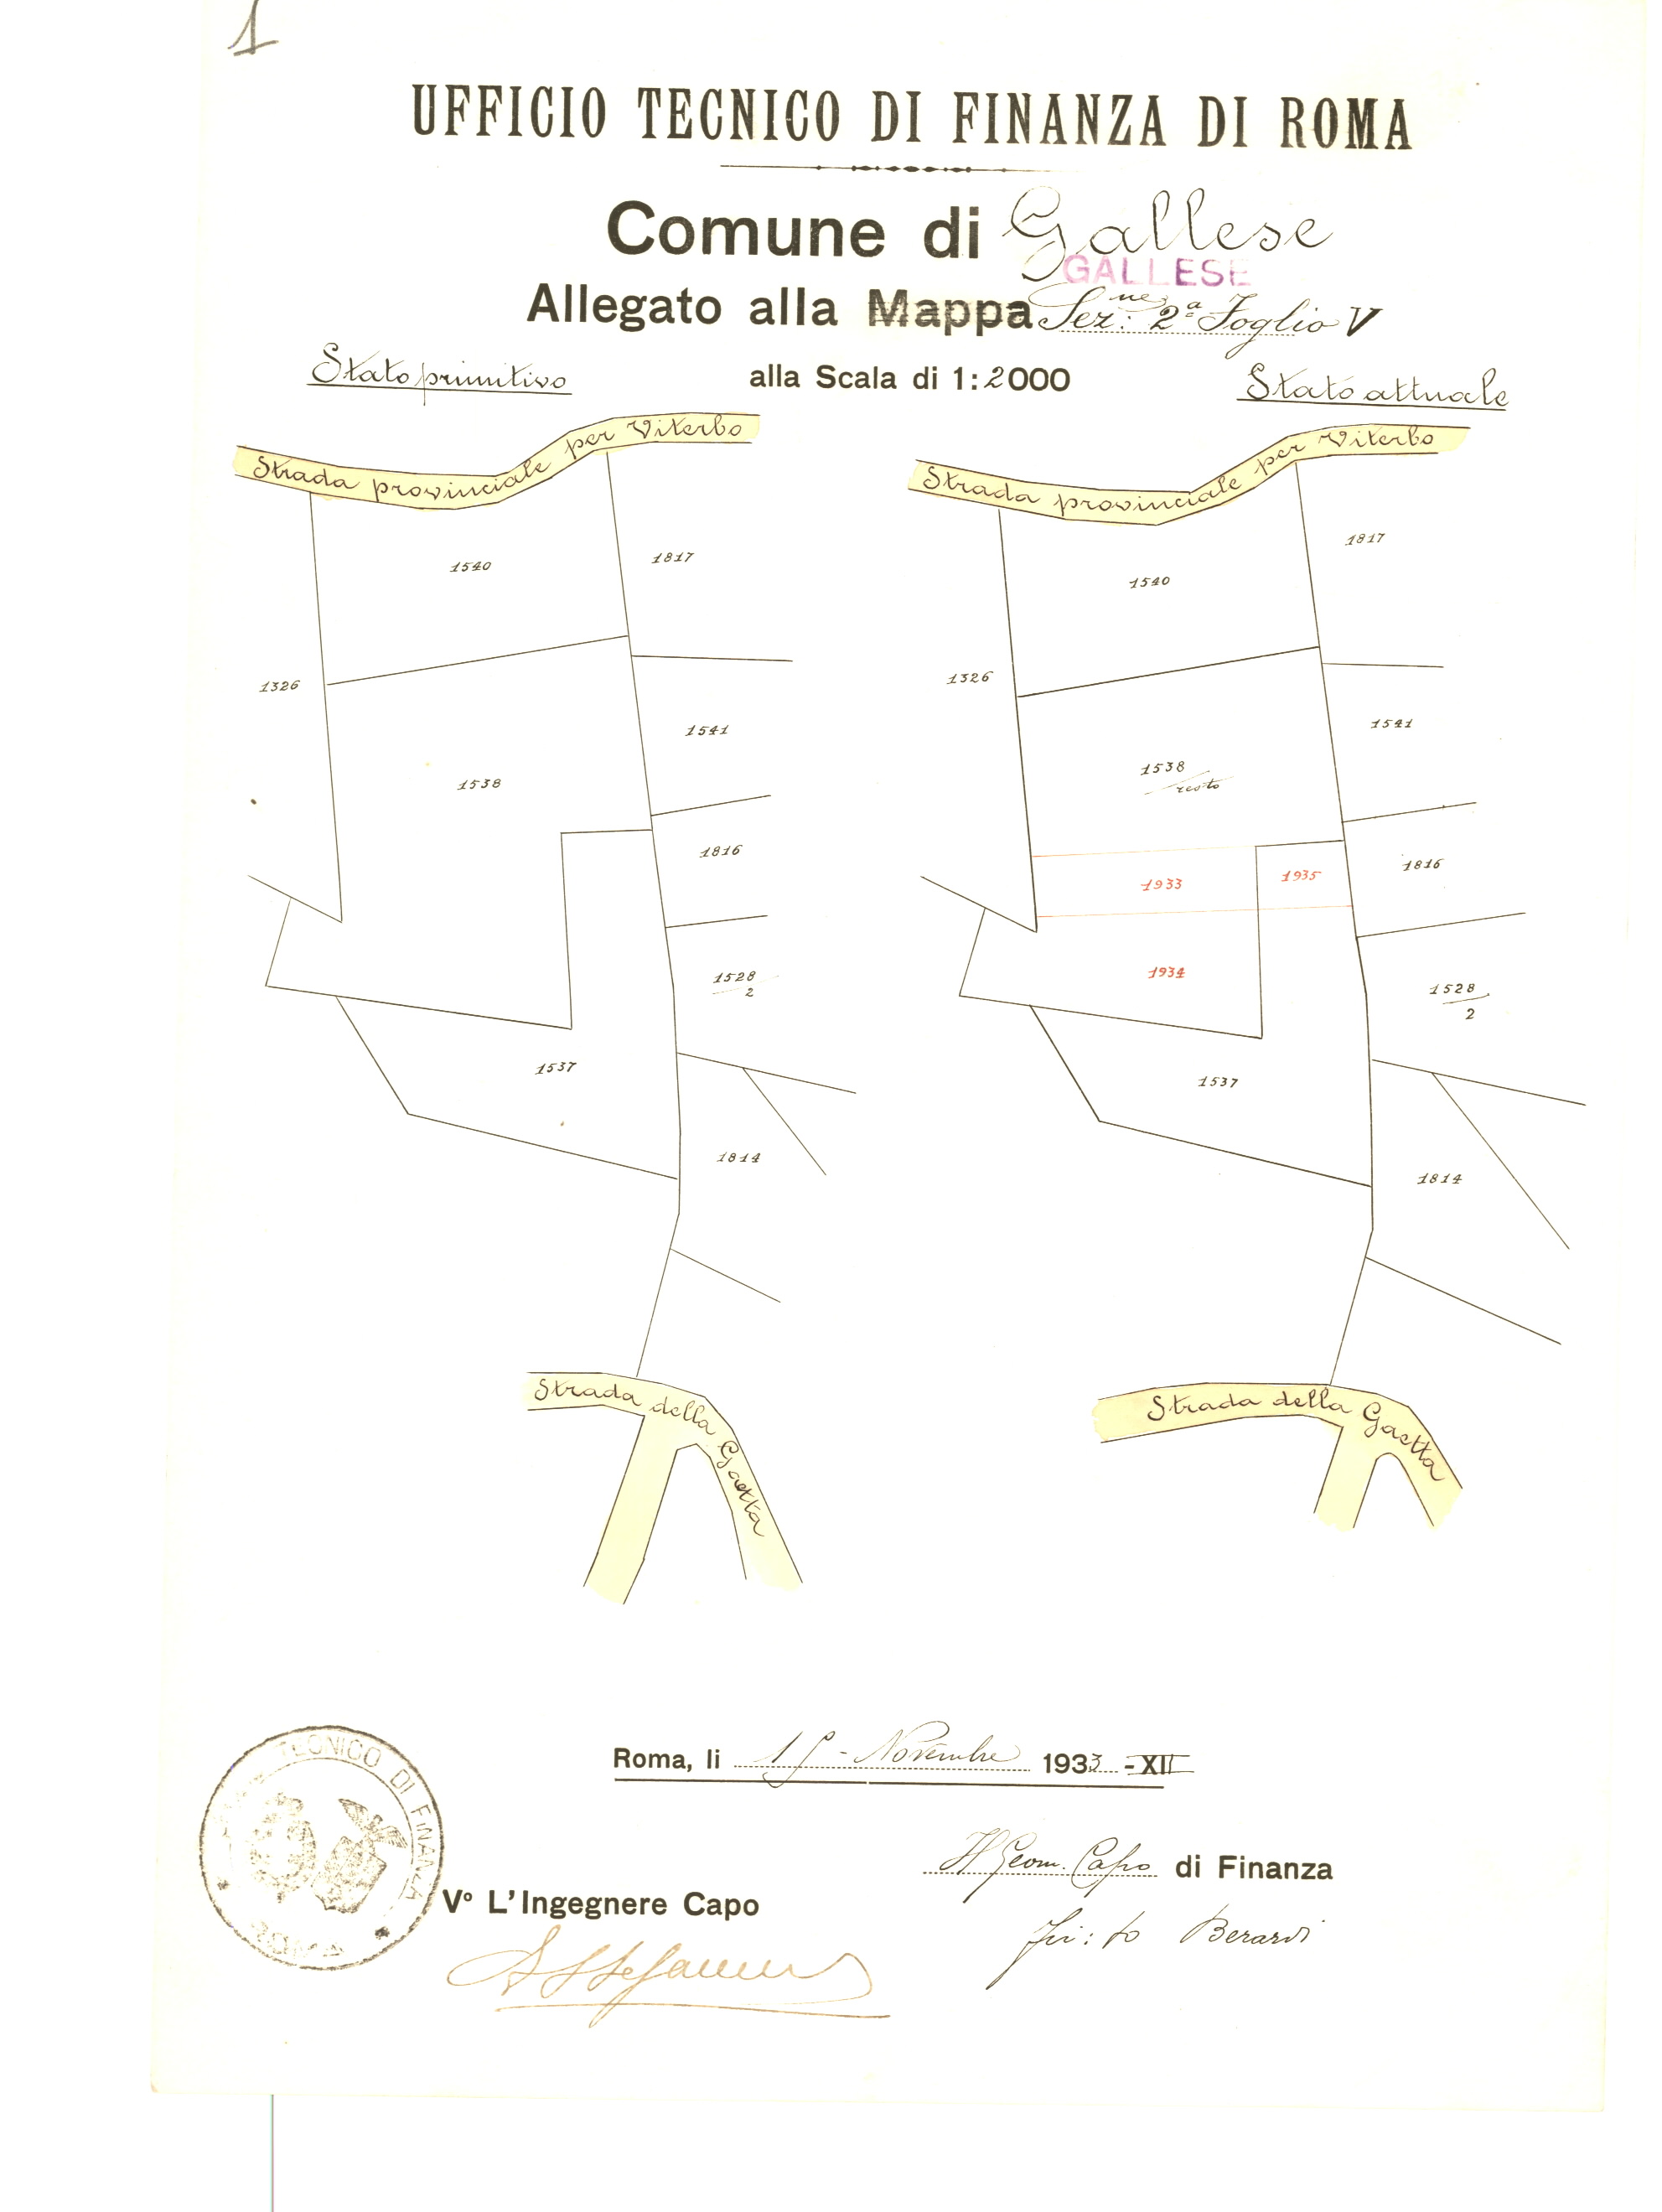 1
UFFICIO TECNICO DI FINANZA DI ROMA
Comune di Gallese
GALLESE
Allegato alla Mappa Sez:ne 2ª Foglio V
alla Scala di 1:2000
Stato primitivo
Strada provinciale per Viterbo
1540
1817
1326
1541
1538
1816
1528
2
1537
1814
Strada della Gaetta
Stato attuale
Strada provinciale per Viterbo
1817
1540
1326
1541
1538
resto
1816
1933
1935
1934
1528
2
1537
1814
Strada della Gaetta
Roma, li Novembre 1933 - XII
TECNICO DI FINANZA
ROMA
Il Geom. Capo di Finanza
V° L'Ingegnere Capo
Berardi